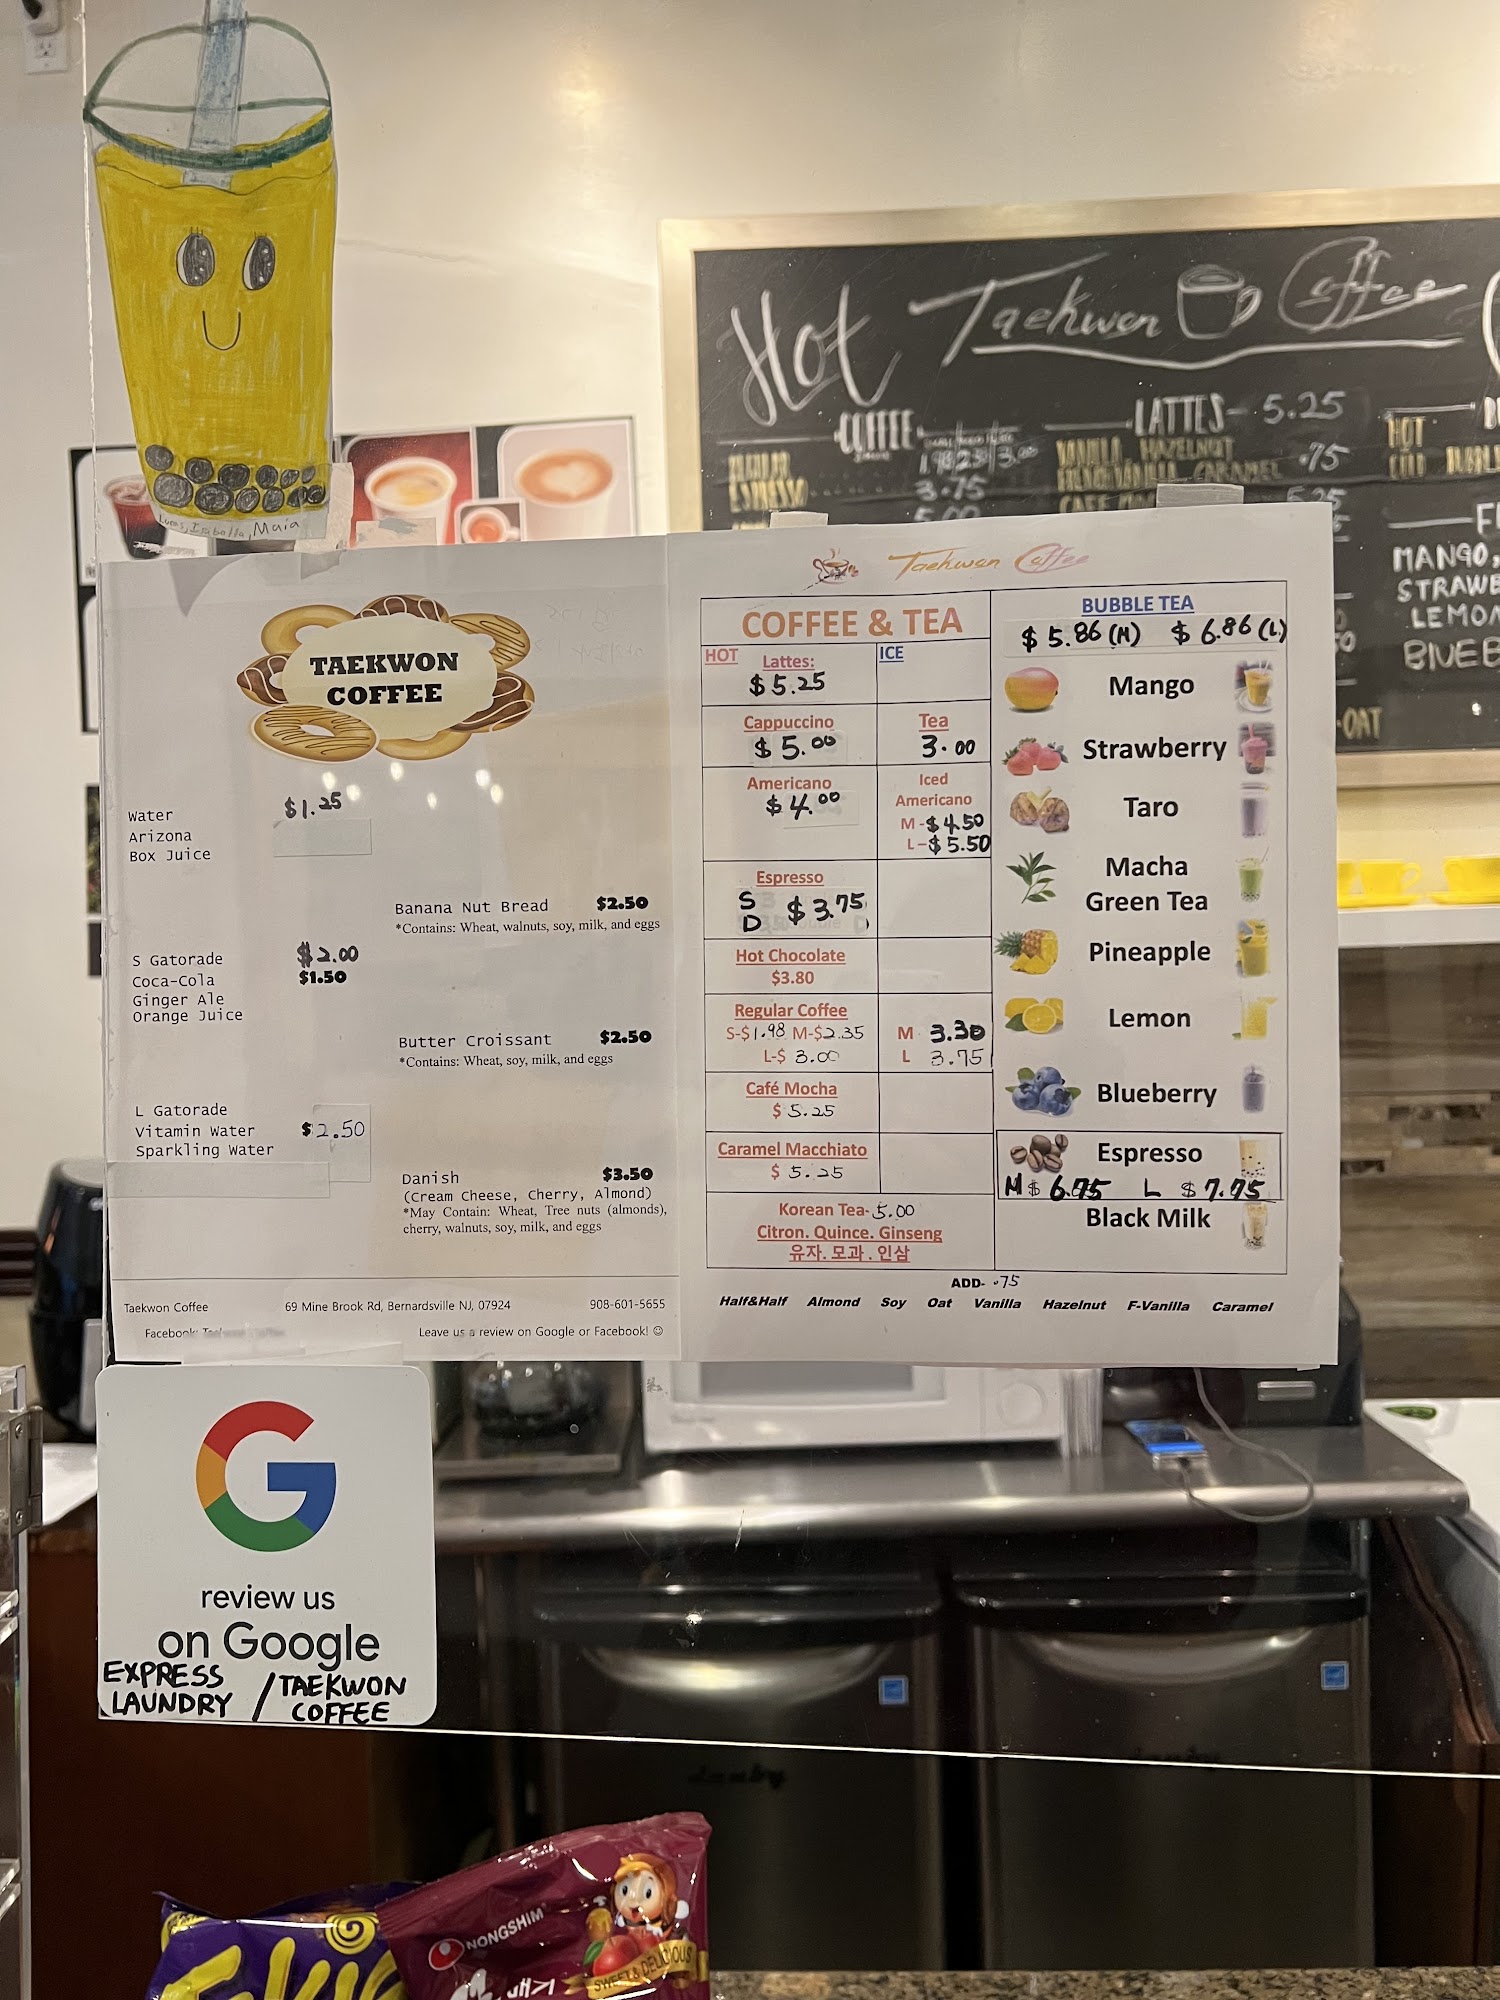 Lucas, Isabella, Maia
Hot Taekwon Coffee
COFFEE
LATTES- 5.25
HOT
REGULAR
1.98 2.35 3.00
VANILLA, HAZELNUT
FRENCH VANILLA CARAMEL .75
COLD
ESPRESSO
3.75
5.00
5.25
MANGO,
STRAWB
LEMON
BLUEB
-OAT
TAEKWON
COFFEE
Water
$1.25
Arizona
Box Juice
Banana Nut Bread $2.50
*Contains: Wheat, walnuts, soy, milk, and eggs
S Gatorade $2.00
Coca-Cola $1.50
Ginger Ale
Orange Juice
Butter Croissant $2.50
*Contains: Wheat, soy, milk, and eggs
L Gatorade
Vitamin Water $2.50
Sparkling Water
Danish $3.50
(Cream Cheese, Cherry, Almond)
*May Contain: Wheat, Tree nuts (almonds),
cherry, walnuts, soy, milk, and eggs
Taekwon Coffee 69 Mine Brook Rd, Bernardsville NJ, 07924 908-601-5655
Facebook: Leave us a review on Google or Facebook! ☺
Taekwon Coffee
COFFEE & TEA
HOT
ICE
Lattes:
$5.25
Cappuccino
$5.00
Tea
3.00
Americano
$4.00
Iced
Americano
M-$4.50
L-$5.50
Espresso
S
D $3.75
Hot Chocolate
$3.80
Regular Coffee
S-$1.98 M-$2.35
L-$ 3.00
M 3.30
L 3.75
Café Mocha
$ 5.25
Caramel Macchiato
$ 5.25
Korean Tea-5.00
Citron. Quince. Ginseng
유자. 모과 . 인삼
BUBBLE TEA
$5.86(M) $6.86(L)
Mango
Strawberry
Taro
Macha
Green Tea
Pineapple
Lemon
Blueberry
Espresso
M$ 6.75 L $7.75
Black Milk
ADD- .75
Half&Half Almond Soy Oat Vanilla Hazelnut F-Vanilla Caramel
G
review us
on Google
EXPRESS
LAUNDRY / TAEKWON
COFFEE
Danby
NONGSHIM
SWEET & DELICIOUS